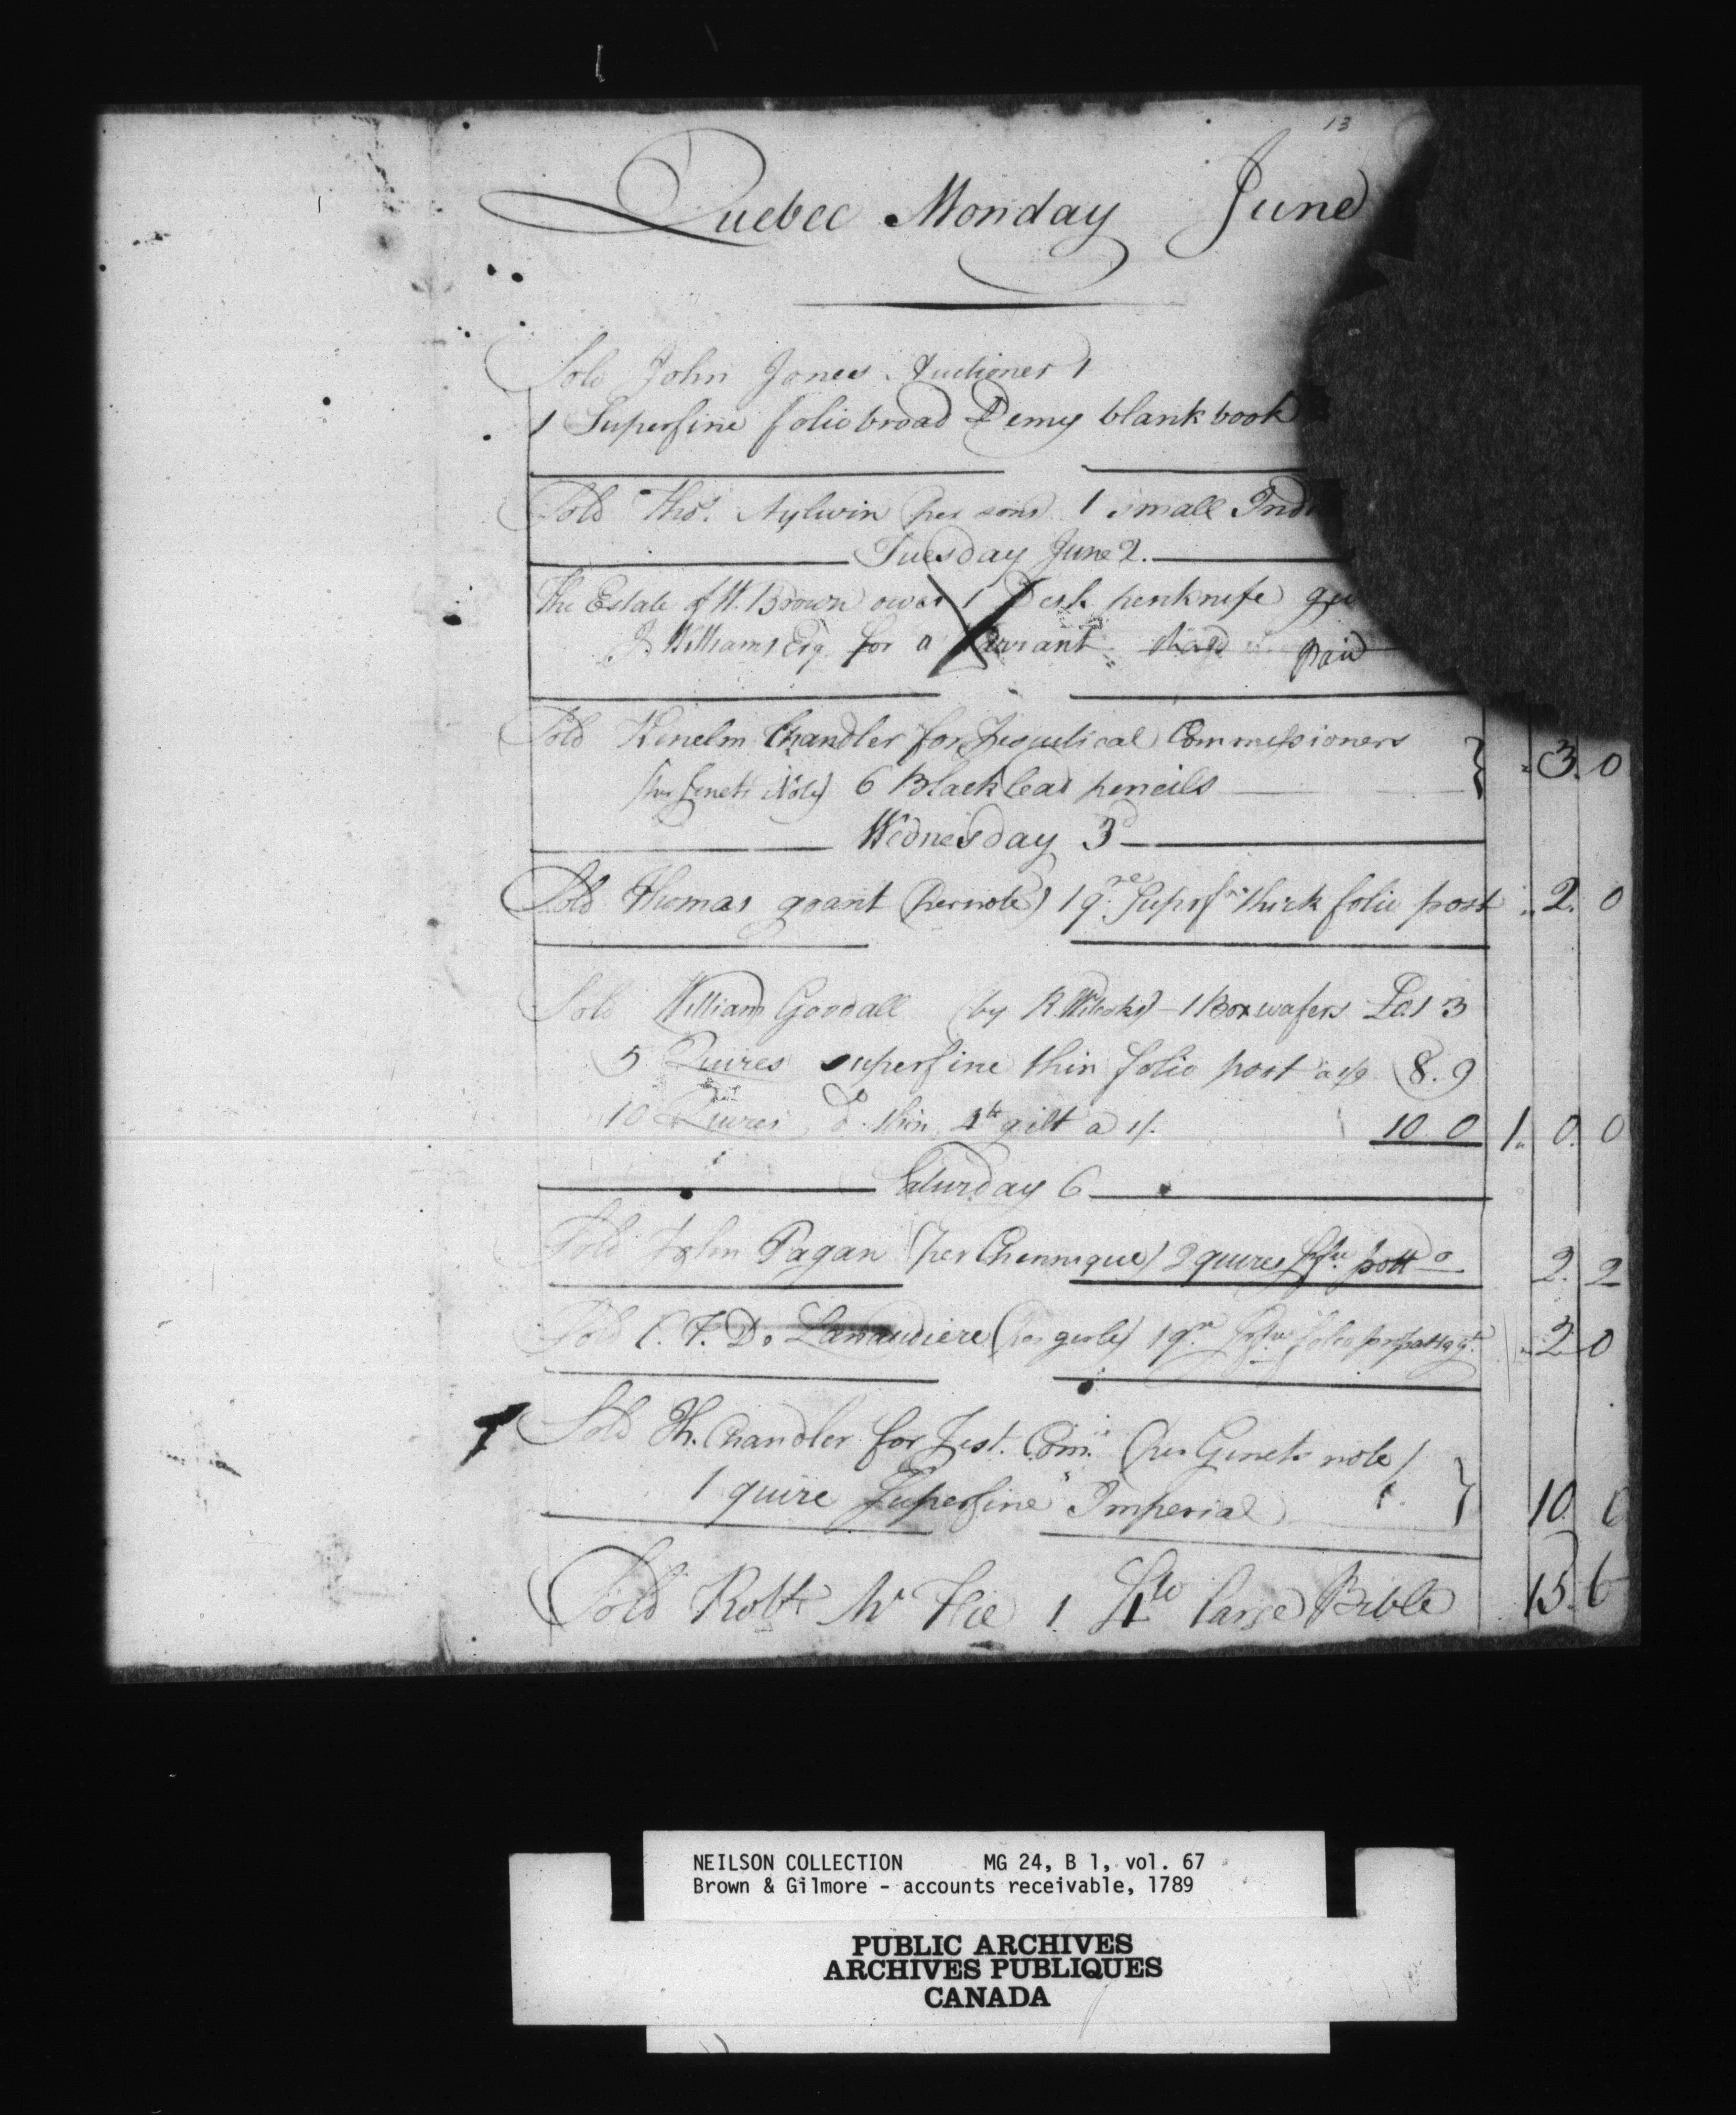 13
Quebec Monday June
Sold John Jones Auctioner 1
1 Superfine folio broad Demy blank book
Sold Thos. Aylwin (per son) 1 small Ind
Tuesday June 2.
The Estate of W. Brown owes 1 Desk penknife
J. Williams Esq. for a Warrant paid
Sold Kenelm Chandler for Jesuitical Commissioners
(per Genets Note) 6 Black lead pencils } " 3. 0
Wednesday 3d
Sold Thomas grant (per note) 1 qre. Supfne thick folio post " 2. 0
Sold William Goodall (by R. ) 1 Box wafers £0.1 3
5 Quires superfine thin folio post a 1/9 8.9
10 Quires do. thin 4to gilt a 1/. 10 0 1 " 0. 0
Saturday 6
Sold John Pagan (per Chennique) 2 quires pott 2. 2
Sold C. F. D. Lanaudiere 1 qre folio " 2 0
Sold K. Chandler for Jest. Com. (per Genets note)
1 quire Superfine Imperial } 10. 0
Sold Robt Mc Fie 1 4to large Bible 15. 6
NEILSON COLLECTION MG 24, B 1, vol. 67
Brown & Gilmore - accounts receivable, 1789
PUBLIC ARCHIVES
ARCHIVES PUBLIQUES
CANADA